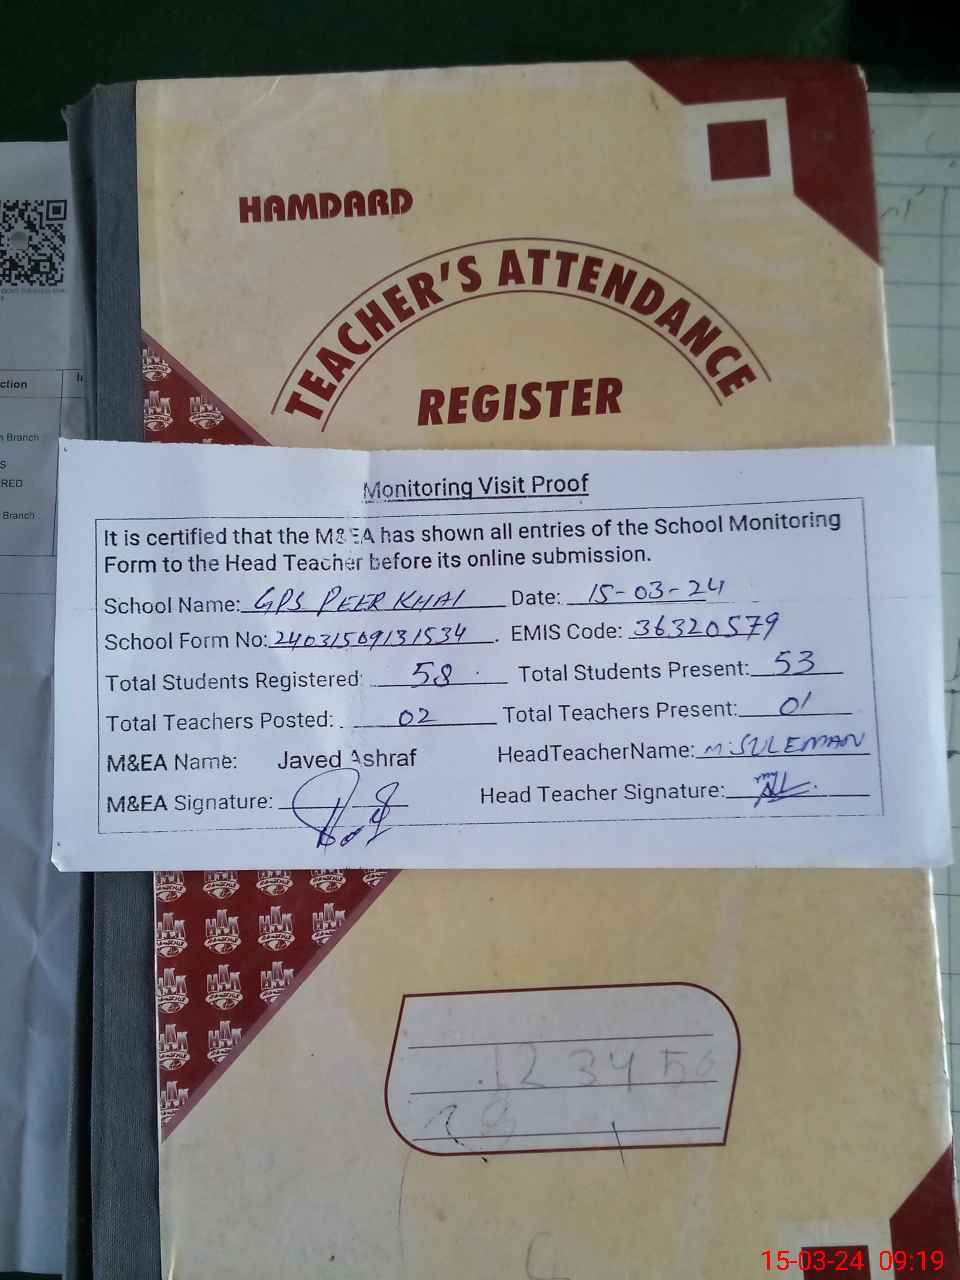 HAMDARD
TEACHER'S ATTENDANCE
REGISTER
ction
Branch
S
RED
Branch
Monitoring Visit Proof
It is certified that the M&EA has shown all entries of the School Monitoring
Form to the Head Teacher before its online submission.
School Name: GPS PEER KHAI Date: 15-03-24
School Form No: 24031509131534. EMIS Code: 36320579
Total Students Registered: 58 Total Students Present: 53
Total Teachers Posted: 02 Total Teachers Present: 01
M&EA Name: Javed Ashraf HeadTeacherName: M. SULEMAN
M&EA Signature: Head Teacher Signature:
12 34 56
15-03-24 09:19